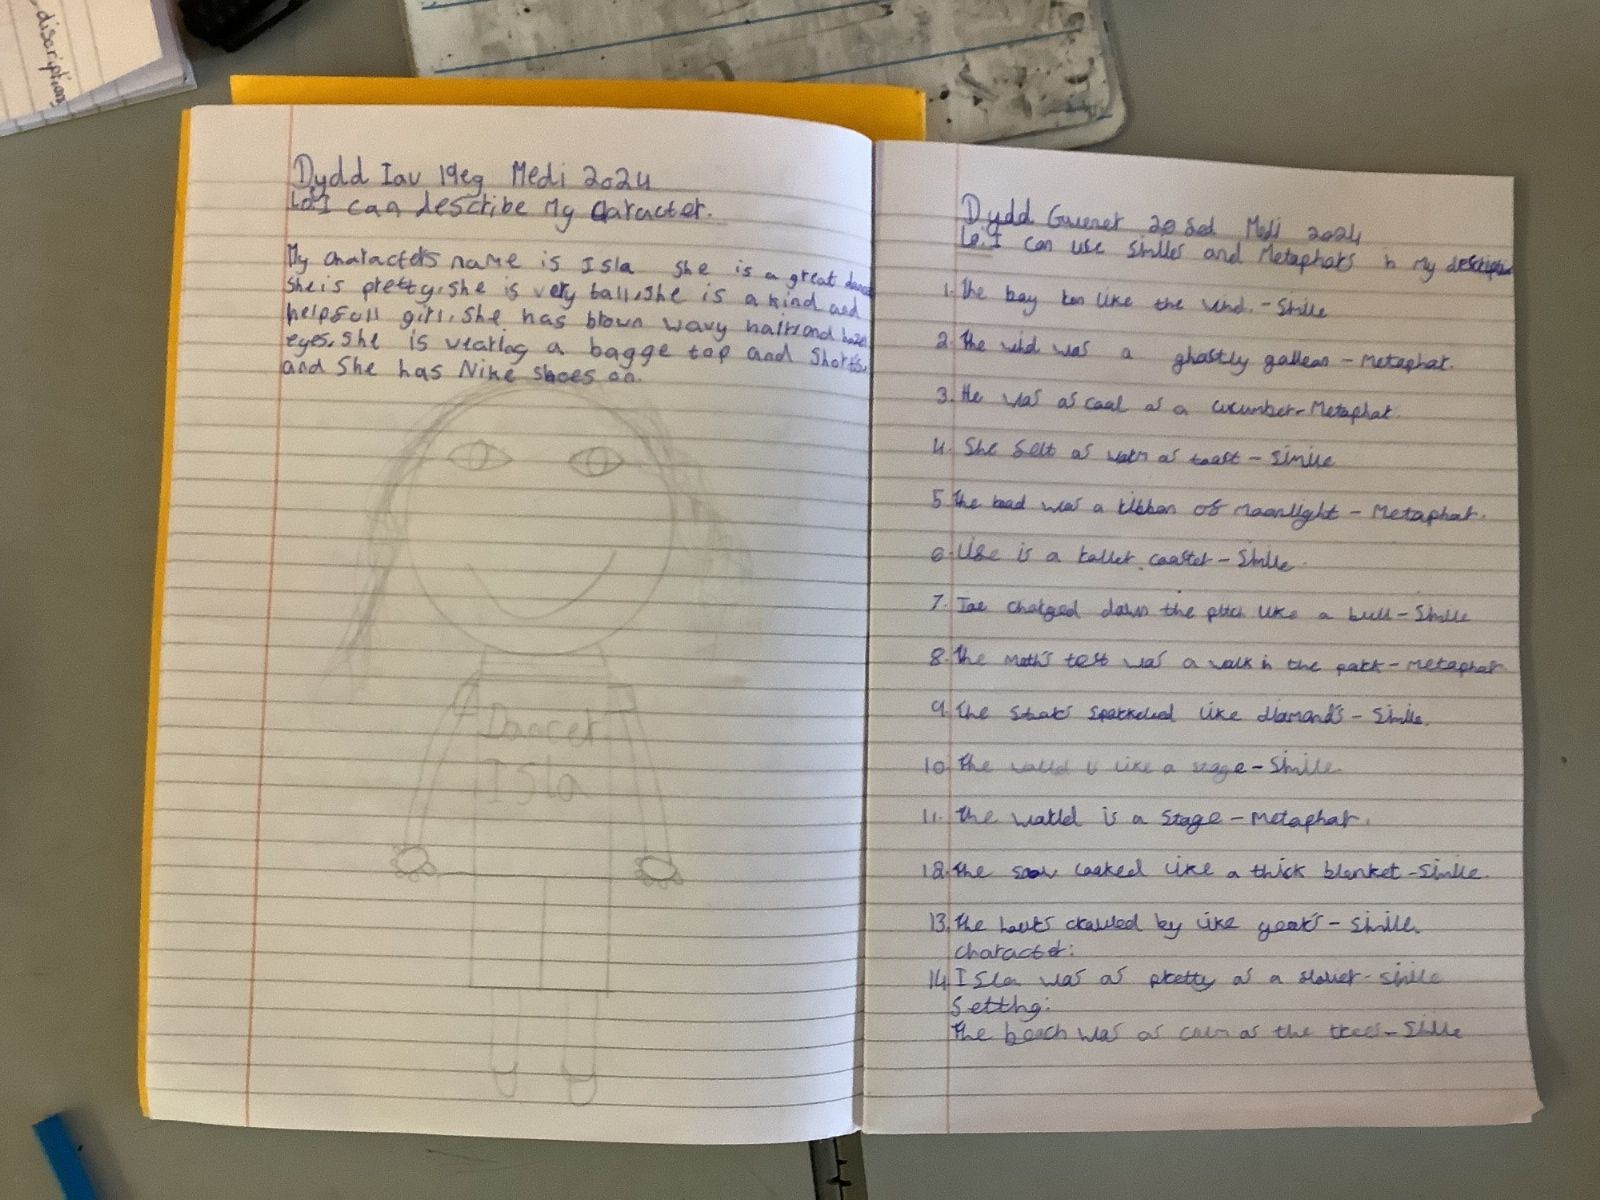 discription
Dydd Iau 19eg Medi 2024
Lo:I can describe My caracter.
My characters name is Isla She is a great
She is pretty, she is very tall, she is a kind and
helpfull girl, She has brown wavy hair and hazel
eyes, She is wearing a bagge top and Shorts,
and She has Nike shoes on.
Dancer
Isla
Dydd Gwener 20 fed Medi 2024
Lo: I can use Similes and Metaphors in My description
1. The boy ran like the wind. - Simile
2. The wind was a ghostly galleon - Metaphor.
3. He was as cool as a cucumber - Metaphor.
4. She felt as warm as toast - Simile
5. The road was a ribbon of moonlight - Metaphor.
6. Life is a roller coaster - Simile.
7. Joe charged down the pitch like a bull - Simile
8. The maths test was a walk in the park - Metaphor
9. The stars sparkeled like diamonds - Simile.
10. The world is like a stage - Simile
11. The world is a stage - Metaphor.
12. The snow looked like a thick blanket - Simile.
13. The hours crawled by like years - Simile.
Character:
14. Isla was as pretty as a flower - simile
Setting:
The beach was as calm as the trees - Simile